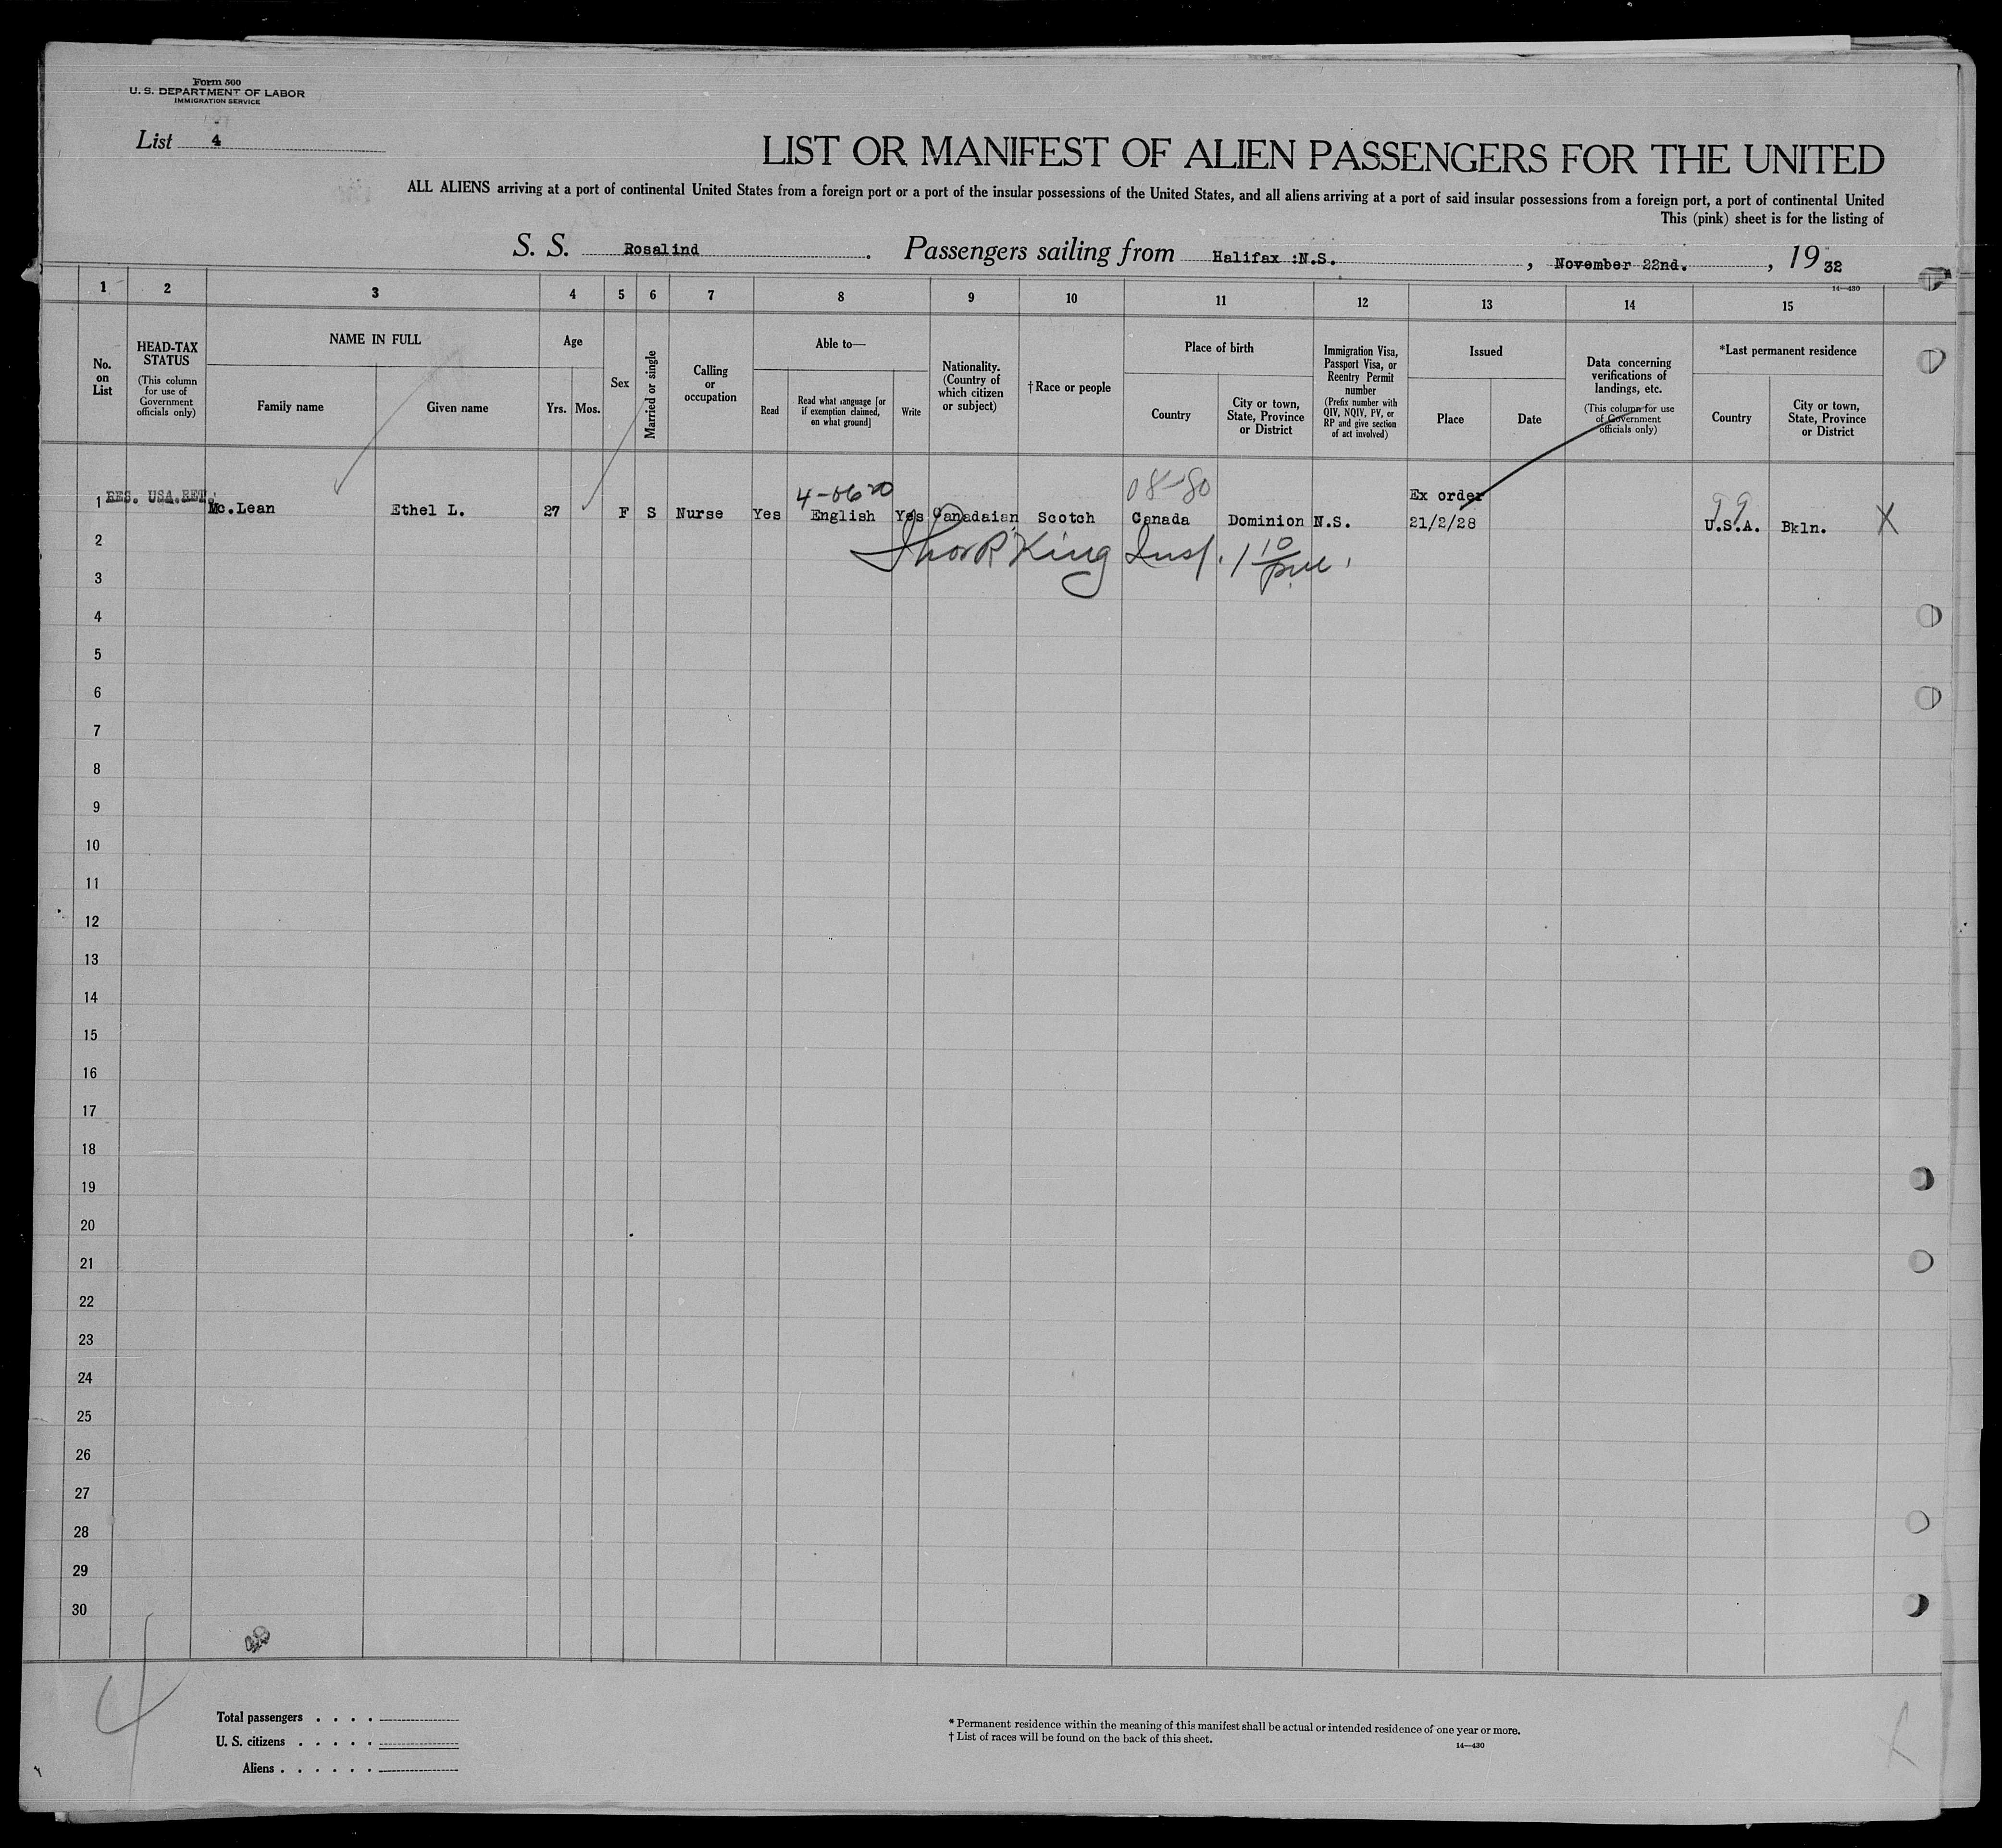 Form 500
U. S. DEPARTMENT OF LABOR
IMMIGRATION SERVICE
List 4
LIST OR MANIFEST OF ALIEN PASSENGERS FOR THE UNITED
ALL ALIENS arriving at a port of continental United States from a foreign port or a port of the insular possessions of the United States, and all aliens arriving at a port of said insular possessions from a foreign port, a port of continental United
This (pink) sheet is for the listing of
S. S. Rosalind. Passengers sailing from Halifax :N.S. , November 22nd. , 19 32
14—430
1 2 3 4 5 6 7 8 9 10 11 12 13 14 15
No. on List
HEAD-TAX STATUS
(This column for use of Government officials only)
NAME IN FULL
Family name
Given name
Age
Yrs. Mos.
Sex
Married or single
Calling or occupation
Able to—
Read
Read what language [or if exemption claimed, on what ground]
Write
Nationality. (Country of which citizen or subject)
† Race or people
Place of birth
Country
City or town, State, Province or District
Immigration Visa, Passport Visa, or Reentry Permit number
(Prefix number with QIV, NQIV, PV, or RP and give section of act involved)
Issued
Place
Date
Data concerning verifications of landings, etc.
(This column for use of Government officials only)
*Last permanent residence
Country
City or town, State, Province or District
4-0620 08-80
1 RES. USA.RET. Mc.Lean Ethel L. 27 F S Nurse Yes English Yes Canadaian Scotch Canada Dominion N.S. Ex order 21/2/28 U.S.A. Bkln. X
King Insp. 1 10 pm.
2
3
4
5
6
7
8
9
10
11
12
13
14
15
16
17
18
19
20
21
22
23
24
25
26
27
28
29
30
4
Total passengers . . . .
U. S. citizens . . . . .
Aliens . . . . . .
* Permanent residence within the meaning of this manifest shall be actual or intended residence of one year or more.
† List of races will be found on the back of this sheet.
14—430